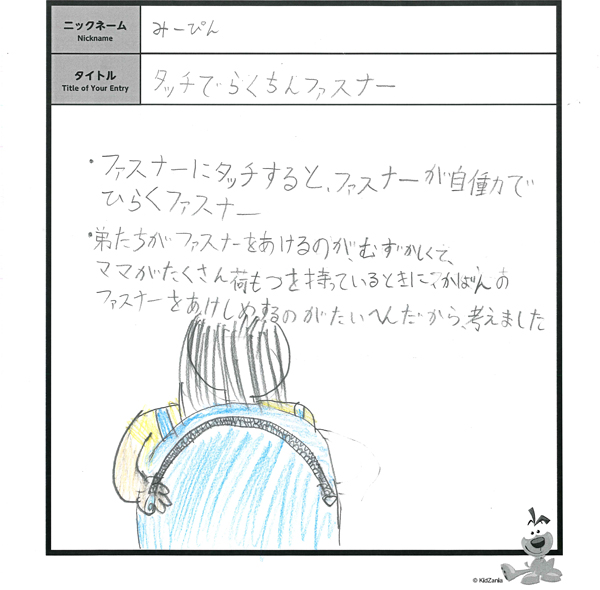 ニックネーム
Nickname
みーぴん
タイトル
Title of Your Entry
タッチでらくちんファスナー
・ファスナーにタッチすると、ファスナーが自働力で
ひらくファスナー
・弟たちがファスナーをあけるのが、むずかしくて、
ママがたくさん荷もつを持っているときに、かばんの
ファスナーをあけしめするのがたいへんだから、考えました
© KidZania